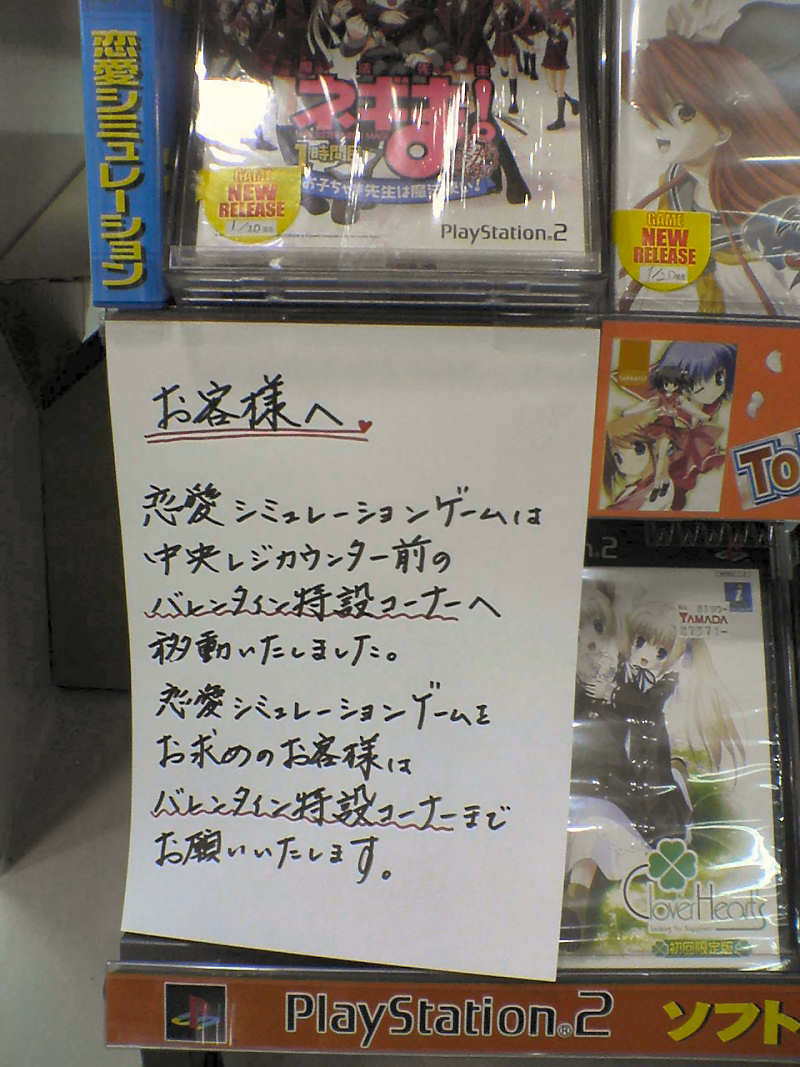 恋愛シミュレーション
ネギま!
1時間目
お子ちゃま先生は魔法使い!
GAME
NEW
RELEASE
PlayStation®2
GAME
NEW
RELEASE
お客様へ
恋愛シミュレーションゲームは
中央レジカウンター前の
バレンタイン特設コーナーへ
移動いたしました。
恋愛シミュレーションゲームを
お求めのお客様は
バレンタイン特設コーナーまで
お願いいたします。
To
YAMADA
CloverHeart's
Looking for Happiness
初回限定版
PlayStation®2 ソフト